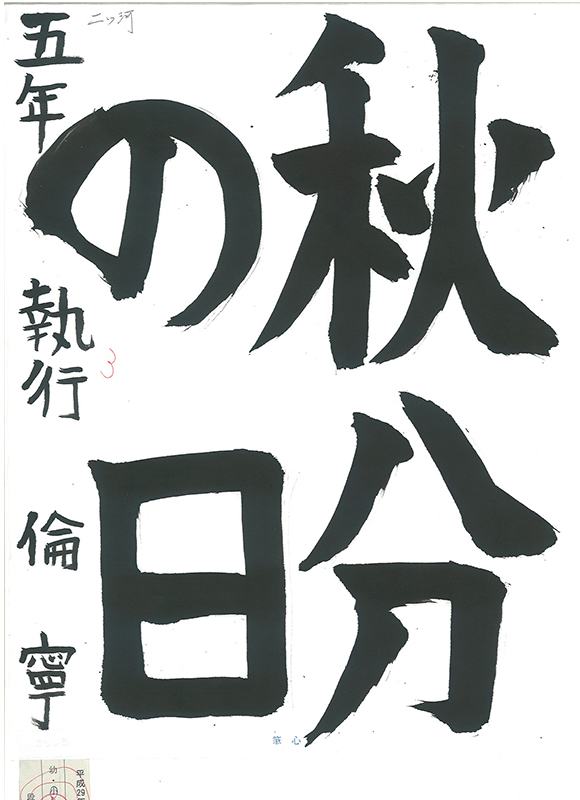 秋分
の日
五年 執行 倫寧
二ッ河
3
筆心
平成29年
幼・小
段